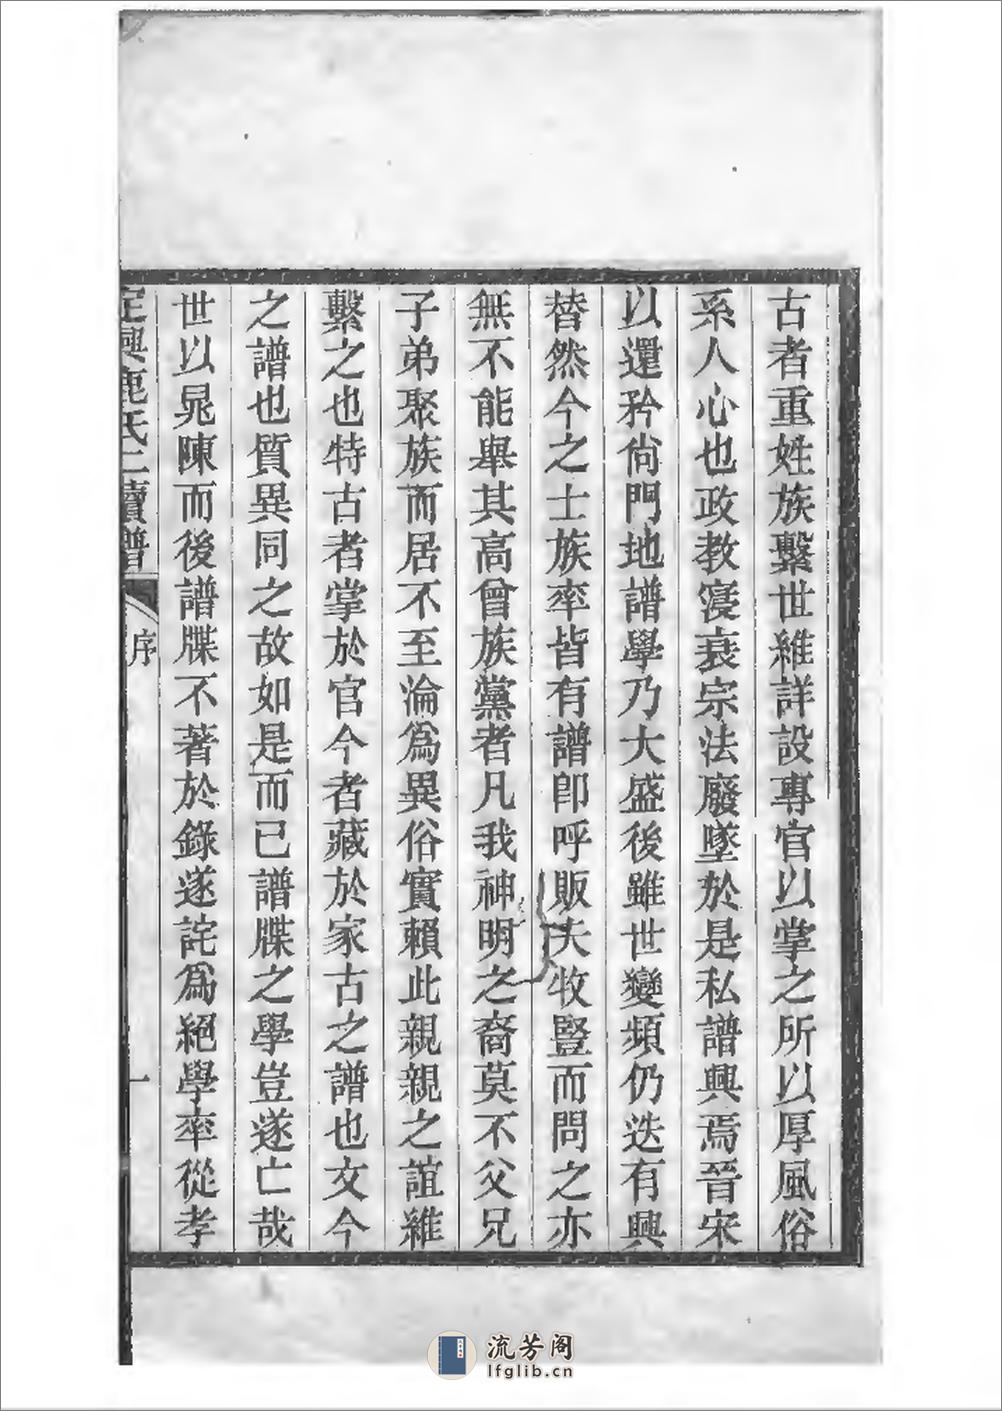 古者重姓族繫世維詳設專官以掌之所以厚風俗
系人心也政教寖衰宗法廢墜於是私譜興焉晉宋
以還矜尙門地譜學乃大盛後雖世變頻仍迭有興
替然今之士族率皆有譜卽呼販夫牧豎而問之亦
無不能舉其高曾族黨者凡我神明之裔莫不父兄
子弟聚族而居不至淪爲異俗實賴此親親之誼維
繫之也特古者掌於官今者藏於家古之譜也文今
之譜也質異同之故如是而已譜牒之學豈遂亡哉
世以晁陳而後譜牒不著於錄遂詫爲絕學率從孝
定興鹿氏二續譜
序
一
流芳阁
lfglib.cn